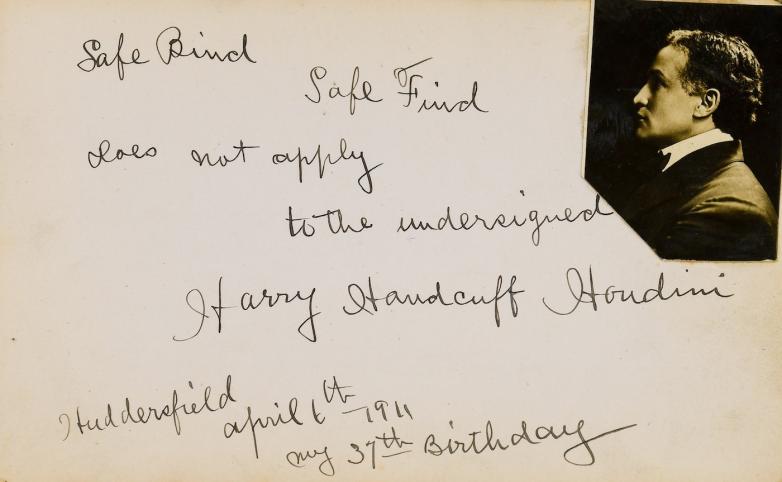 Safe Bind
Safe Find
does not apply
to the undersigned
Harry Handcuff Houdini
Huddersfield
april 6th 1911
my 37th Birthday